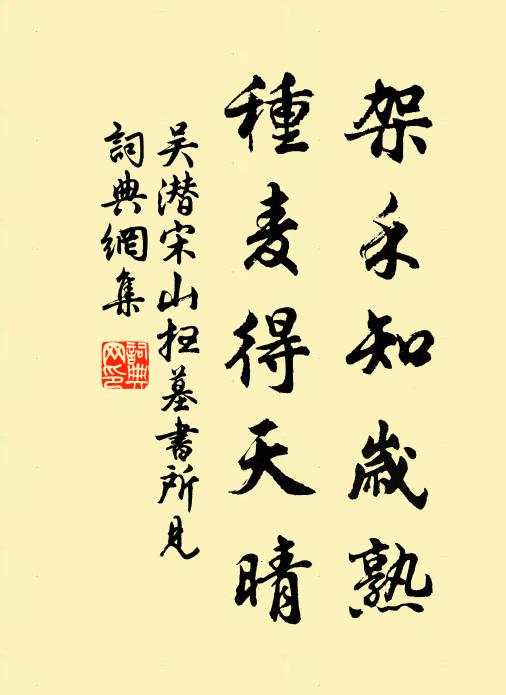 架禾知歲熟
種麦得天晴
吴潜宋山扫墓書所見
詞典網集
詞典
网印